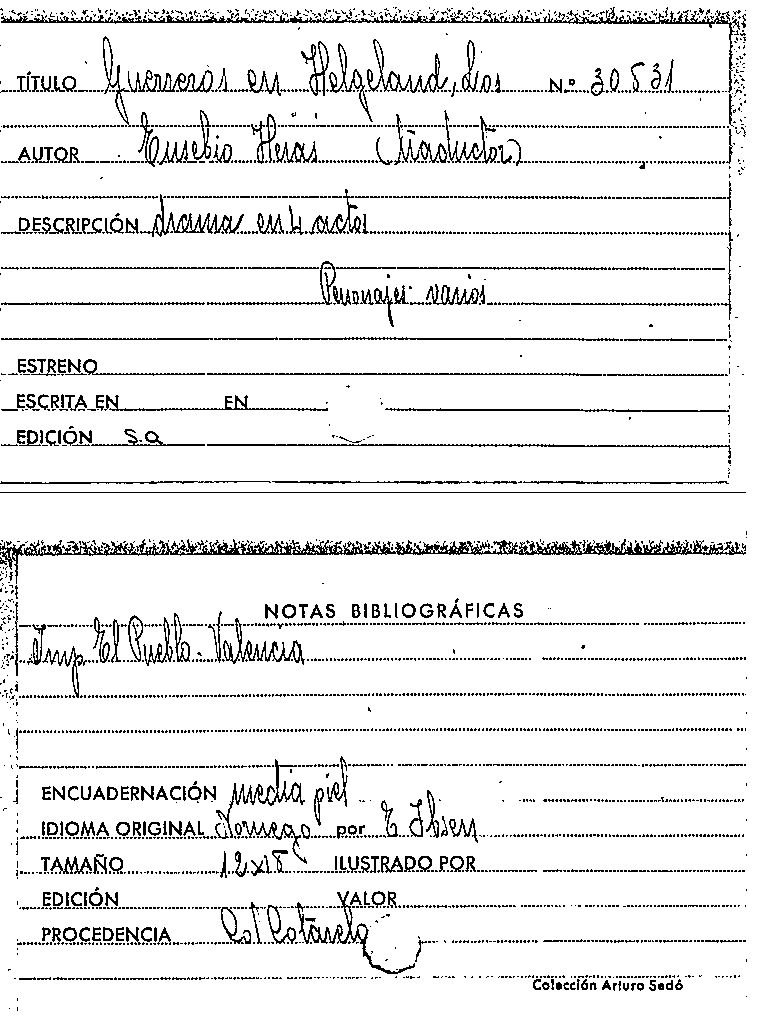 TÍTULO Guerreros en Helgeland, Los N.º 30531
AUTOR Eusebio Heras (traductor)
DESCRIPCIÓN drama en 4 actos
Personajes: varios
ESTRENO
ESCRITA EN EN
EDICIÓN S.a
NOTAS BIBLIOGRÁFICAS
Imp El Pueblo. Valencia
ENCUADERNACIÓN media piel
IDIOMA ORIGINAL Noruego por E Ibsen
TAMAÑO 12x18 ILUSTRADO POR
EDICIÓN VALOR
PROCEDENCIA Col Cotarelo
Colección Arturo Sedó